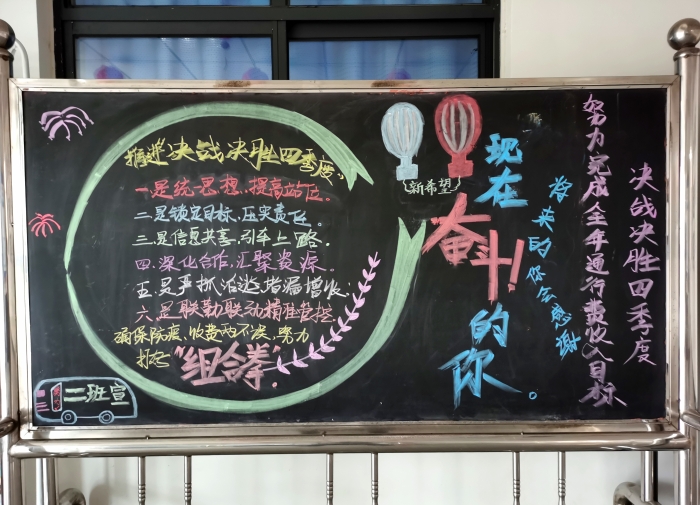 推进决战决胜四季度，
一是统一思想、提高站位。
二是锁定目标、压实责任。
三是信息共享，引车上路。
四.深化合作，汇聚资源。
五是严抓治逃，堵漏增收；
六是联勤联动精准管控
确保防疫、收费两不误，努力
打好
"组合拳"
二班宣
新希望
现在
奋斗！
的
你。
将来的你会感谢
努力完成全年通行费收入目标
决战决胜四季度